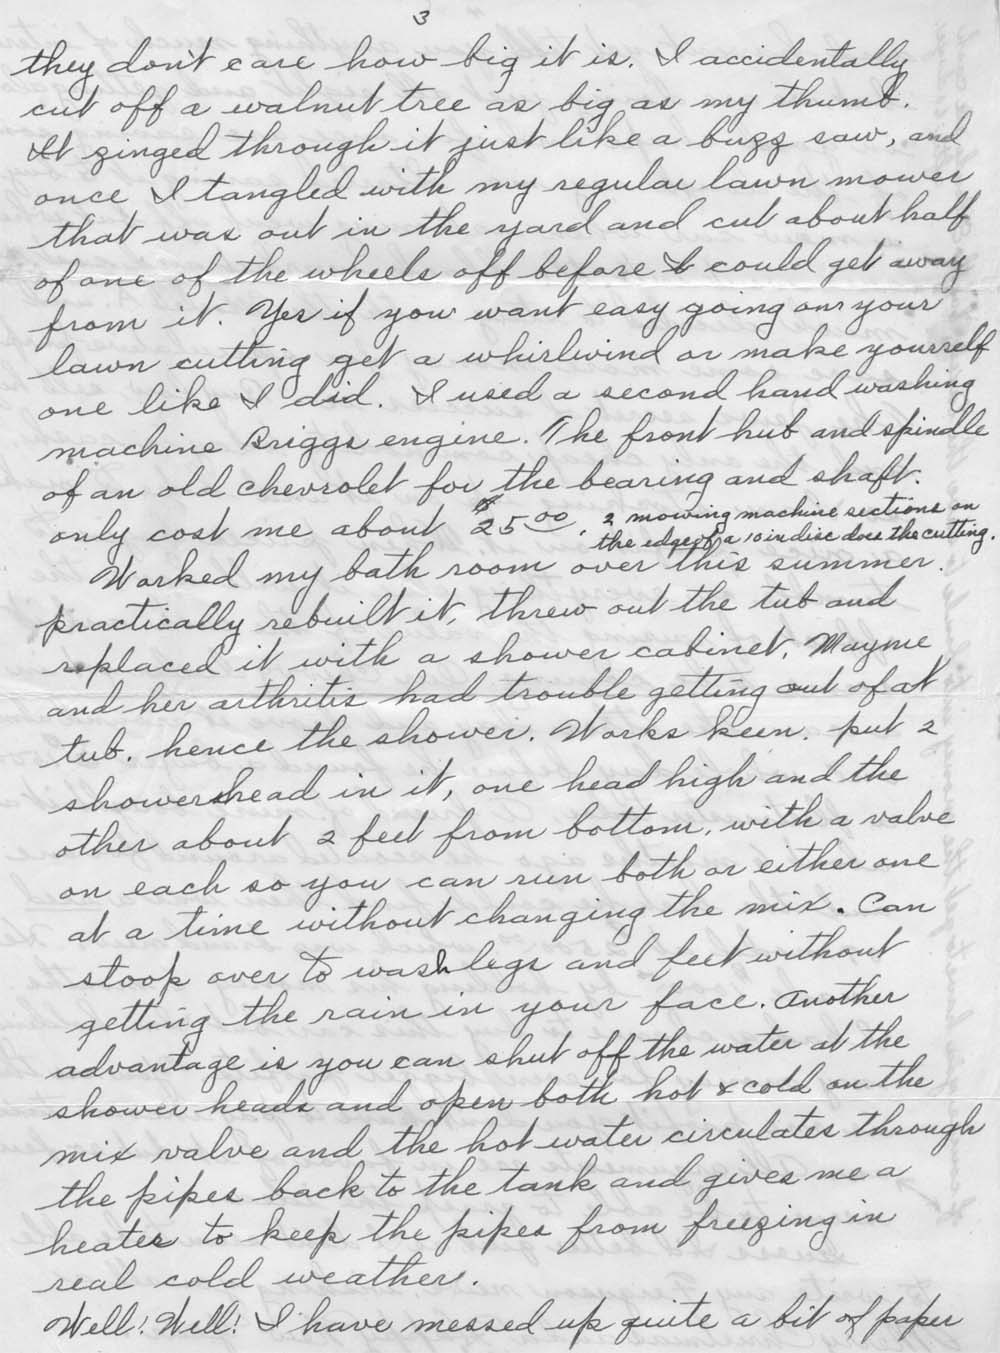 3
they don't care how big it is. I accidentally
cut off a walnut tree as big as my thumb.
It zinged through it just like a buzz saw, and
once I tangled with my regular lawn mower
that was out in the yard and cut about half
of one of the wheels off before I could get away
from it. Yes if you want easy going on your
lawn cutting get a whirlwind or make yourself
one like I did. I used a second hand washing
machine Briggs engine. The front hub and spindle
of an old chevrolet for the bearing and shaft.
only cost me about $25 00. 2 mowing machine sections on
the edge of a 10 in disc does the cutting.
Worked my bath room over this summer.
practically rebuilt it, threw out the tub and
replaced it with a shower cabinet. Mayme
and her arthritis had trouble getting out of at
tub. hence the shower. Works keen. put 2
showershead in it, one head high and the
other about 2 feet from bottom, with a valve
on each so you can run both or either one
at a time without changing the mix. Can
stoop over to wash legs and feet without
getting the rain in your face. Another
advantage is you can shut off the water at the
shower heads and open both hot & cold on the
mix valve and the hot water circulates through
the pipes back to the tank and gives me a
heater to keep the pipes from freezing in
real cold weather.
Well! Well! I have messed up quite a bit of paper